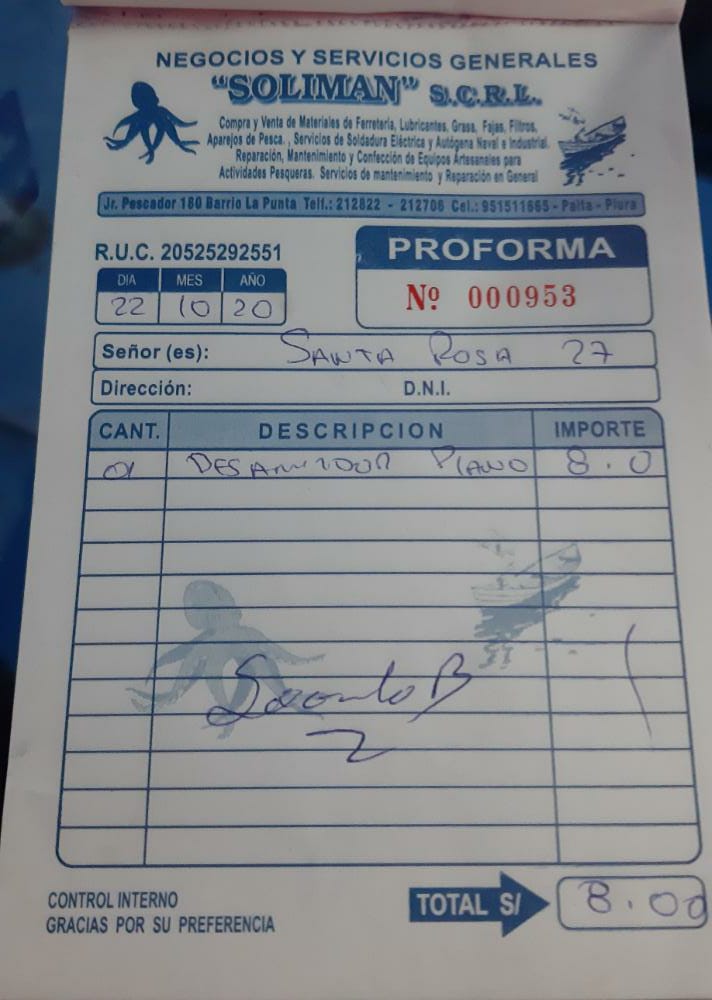 NEGOCIOS Y SERVICIOS GENERALES
"SOLIMAN" S.C.R.L.
Compra y Venta de Materiales de Ferretería, Lubricantes, Grasa, Fajas, Filtros,
Aparejos de Pesca. , Servicios de Soldadura Eléctrica y Autógena Naval e Industrial.
Reparación, Mantenimiento y Confección de Equipos Artesanales para
Actividades Pesqueras. Servicios de mantenimiento y Reparación en General
Jr. Pescador 180 Barrio La Punta Telf.: 212822 - 212706 Cel.: 951511665 - Paita - Piura
R.U.C. 20525292551
PROFORMA
Nº 000953
DIA MES AÑO
22 10 20
Señor (es): SANTA ROSA 27
Dirección: D.N.I.
CANT. DESCRIPCION IMPORTE
01 PLANO 8.0
CONTROL INTERNO
GRACIAS POR SU PREFERENCIA
TOTAL S/ 8.00